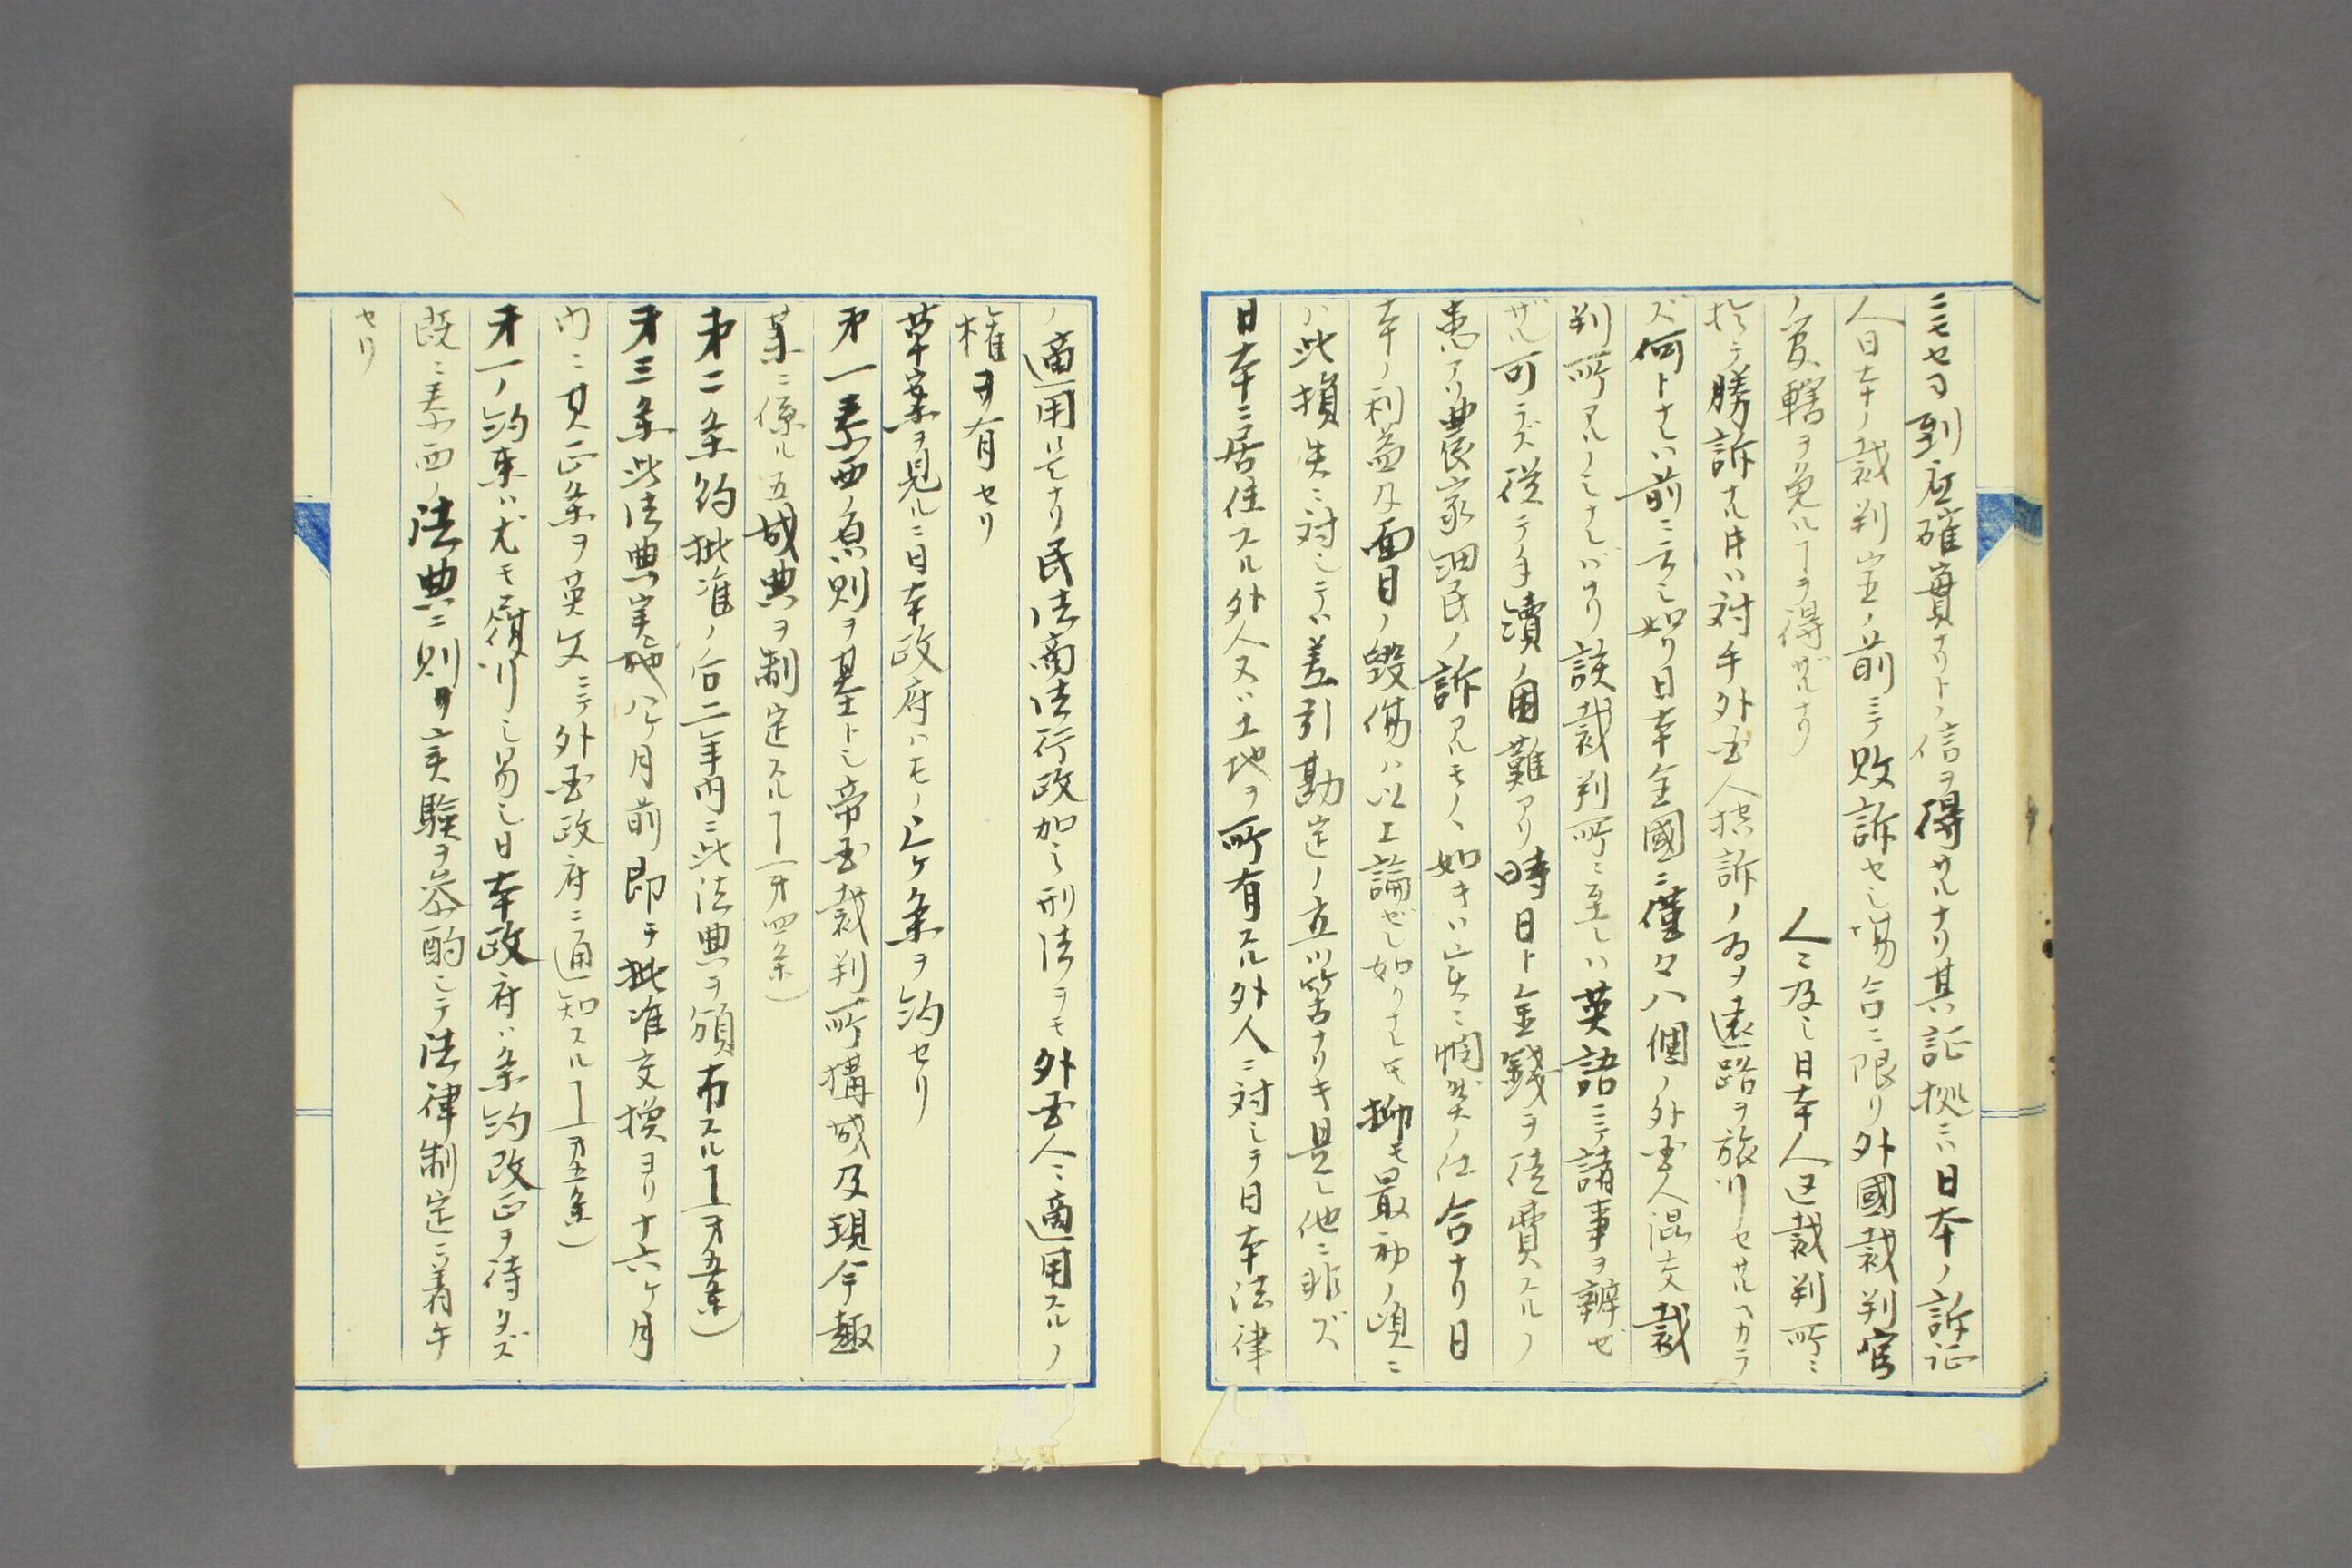 ニモセヨ到底確實ナリトノ信ヲ得サルナリ其証拠ニハ日本ノ訴訟
人日本ノ裁判官ノ前ニテ敗訴セシ場合ニ限リ外國裁判官
ノ管轄ヲ免ルヿヲ得ザルナリ　人ニ及シ日本人迄裁判所ニ
於テ勝訴ナル時ハ対手外国人控訴ノ為メ遠路ヲ旅行セサルヘカラ
ズ何トナレハ前ニ云シ如ク日本全國ニ僅々八個ノ外国人混交裁
判所アルノミナレバナリ該裁判所ニ至レハ英語ニテ諸事ヲ辨ゼ
ザル可ラズ従テ手續ノ困難アリ時日ト金錢ヲ徒費スルノ
患アリ農家細民ノ訴アルモノヽ如キハ実ニ憫然ノ仕合ナリ日
本ノ利益及面目ノ毀傷ハ以上論ゼシ如クナレ𪜈抑モ最初ノ頃ニ
ハ此損失ニ対シテハ差引勘定ノ立ツ筈ナリキ是レ他ニ非ズ
日本ニ居住スル外人又ハ土地ヲ所有スル外人ニ対シテ日本法律
ノ適用是ナリ民法商法行政加之刑法ヲモ外国人ニ適用スルノ
権ヲ有セリ
草案ヲ見ルニ日本政府ハ左ノ三ケ条ヲ約セリ
第一泰西ノ原則ヲ基トシ帝国裁判所構成及現今起
案ニ係ル五成典ヲ制定スルヿ（第四条）
第二条約批准ノ后二年内ニ此法典ヲ頒布スルヿ（第五条）
第三条此法典実施八ケ月前即チ批准交換ヨリ十六ケ月
内ニ其正条ヲ英文ニテ外国政府ニ通知スルヿ（第五条）
第一ノ約束ハ尤モ履行シ易シ日本政府ハ条約改正ヲ待タズ
既ニ泰西ノ法典ニ則リ実験ヲ参酌シテ法律制定ニ着手
セリ